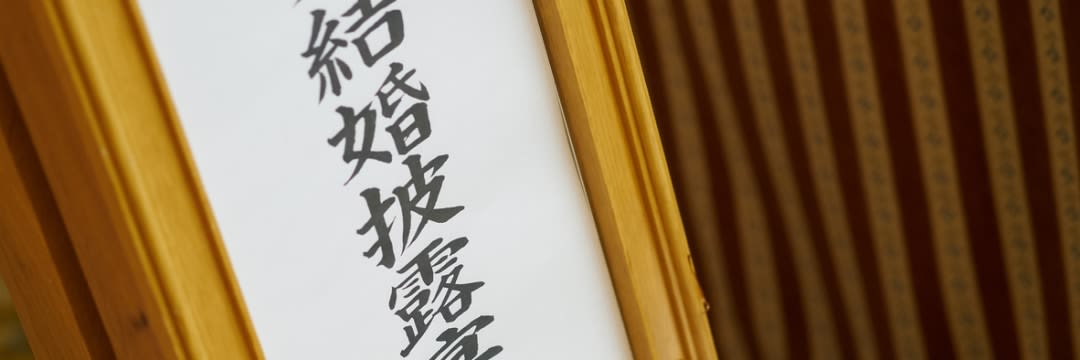 結婚披露宴